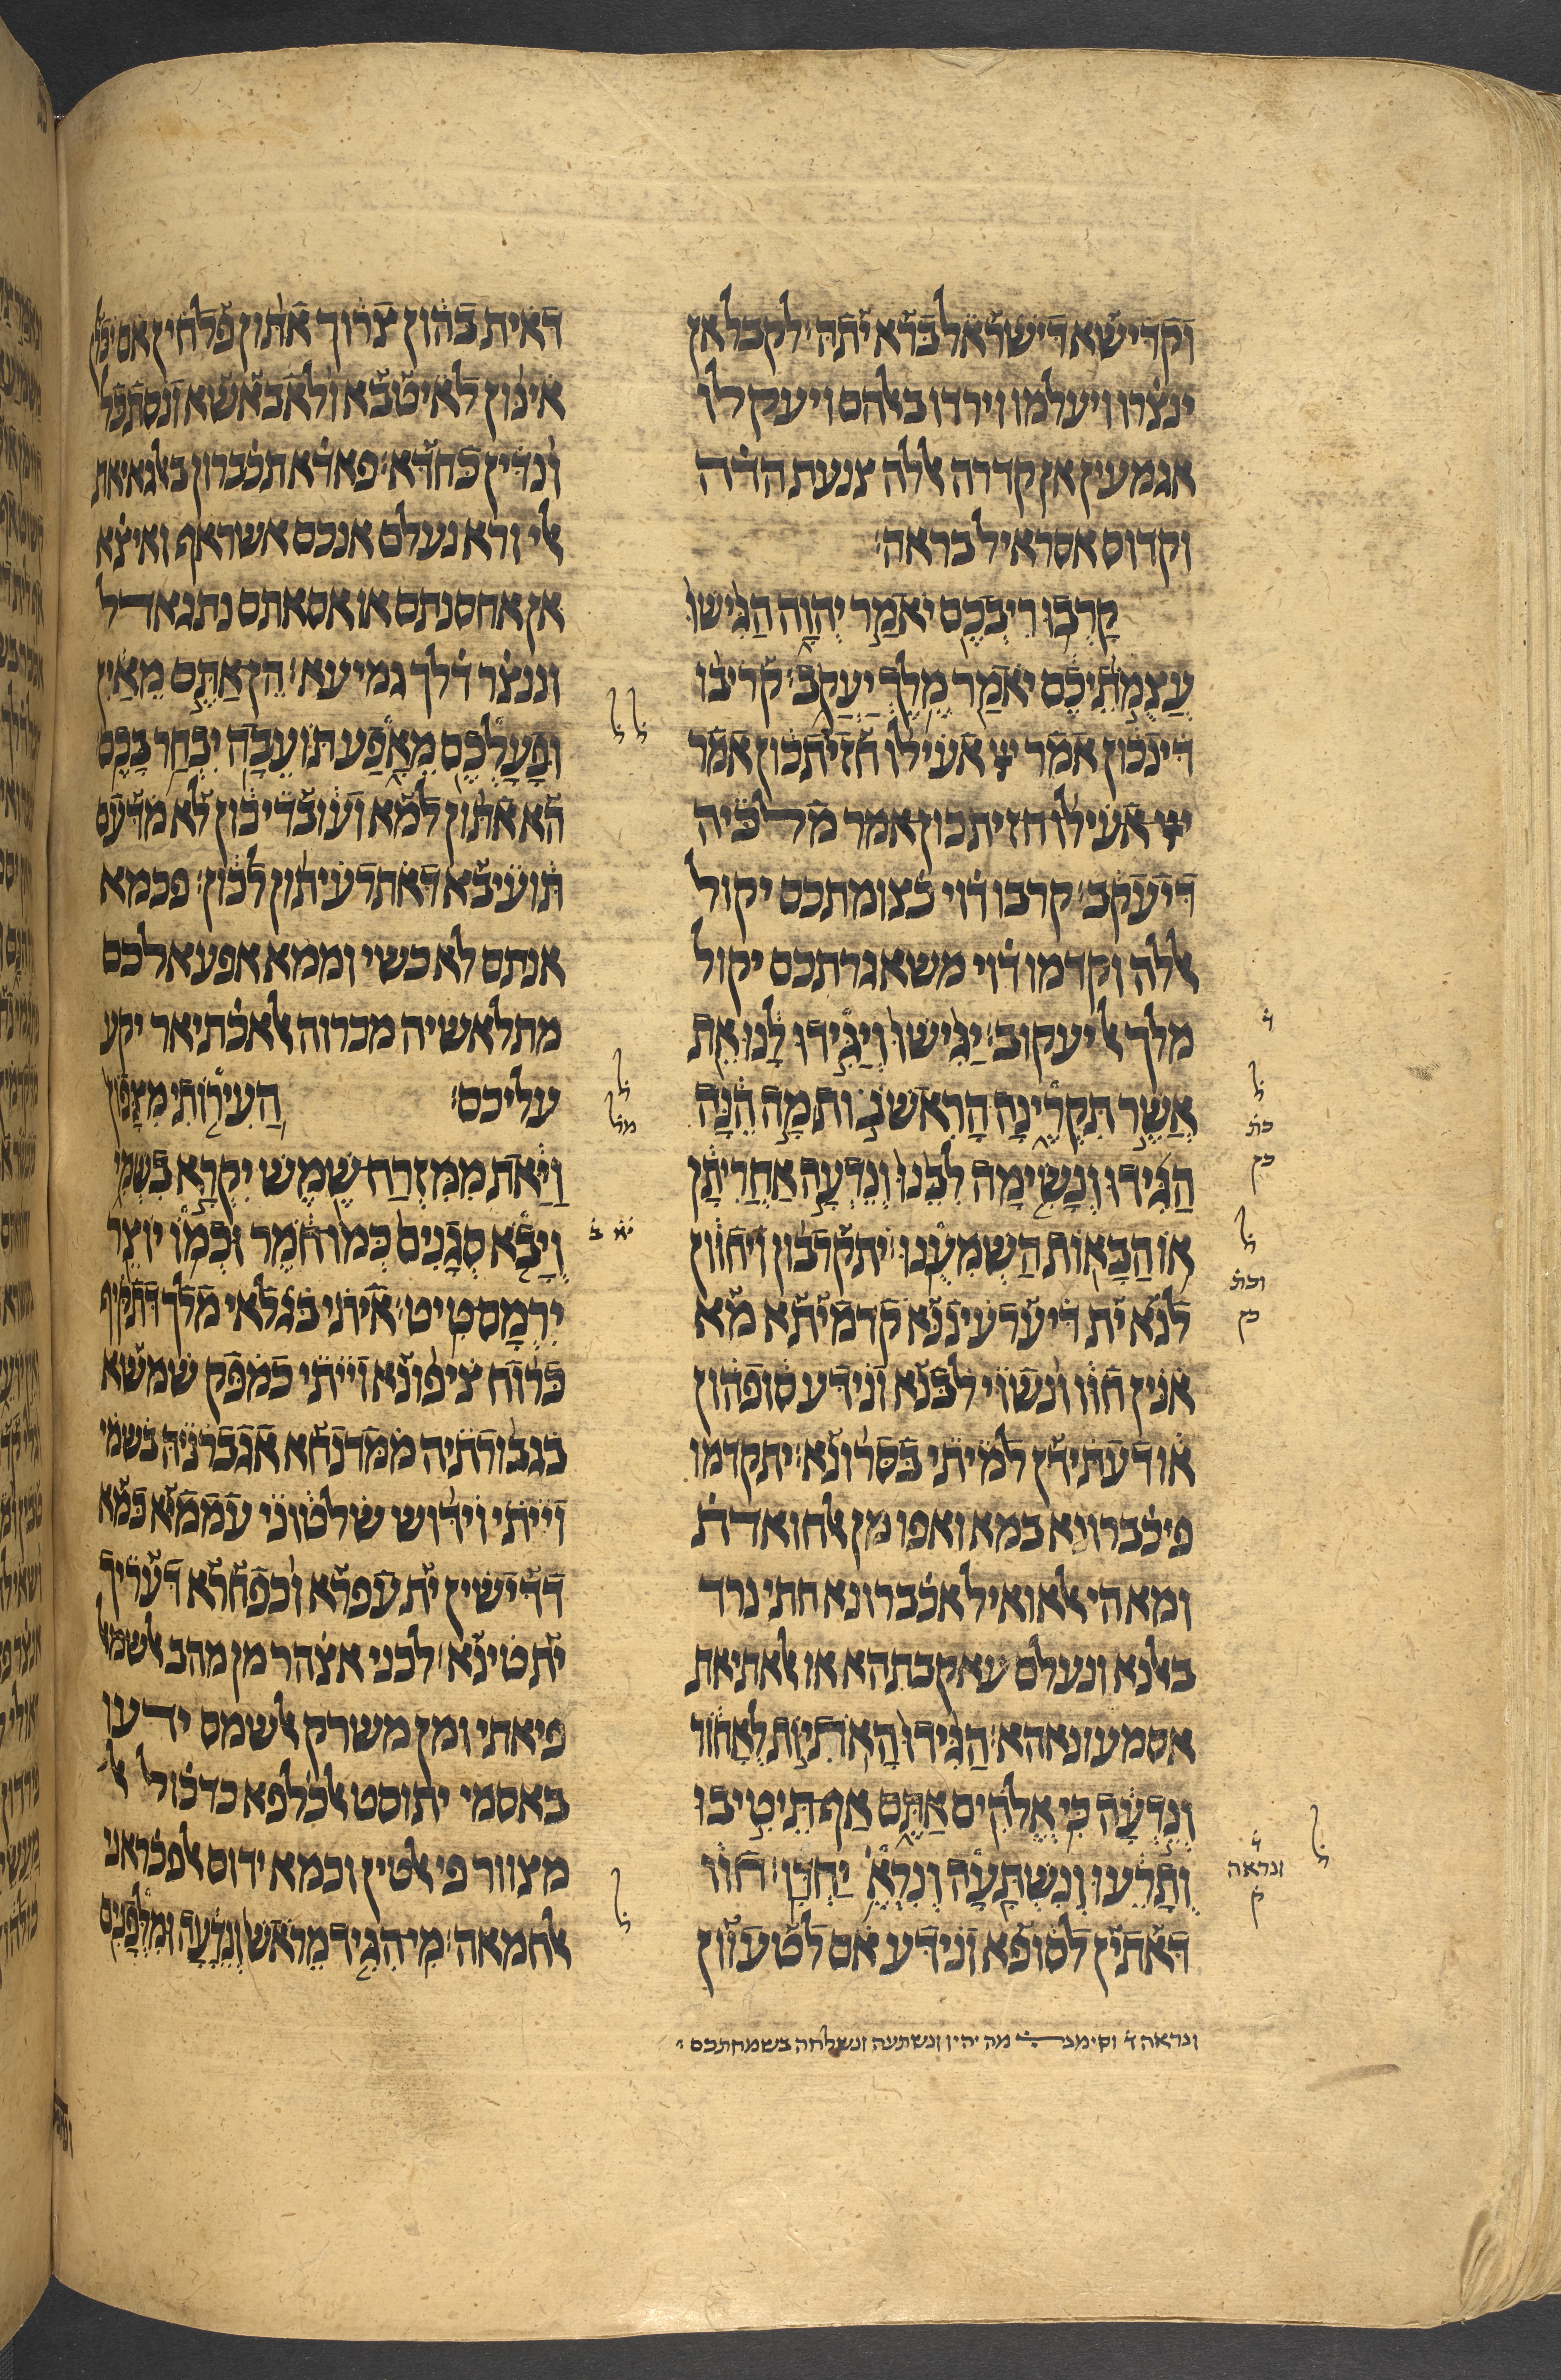 וקדישא דישראל בראיתה׃ לקבל אן
ינצרו ויעלמו וירדו באלהם ויעקלו
אגמעין אן קדרה אללה צנעת הדה
וקדוס אסראיל בראה׃
קרבו ריבכם יאמר יהוה הגישו
עצמתיכם יאמר מלך יעקב׃ קריבו
דינכון אמר אעילו חזיתכון אמר
אעילו חזיתכון אמר מלכיה
דיעקב׃ קרבו דוי כצומתכם יקול
אללה וקדמו דוי משאגרתכם יקול
מלך אל יעקוב׃ יגישו ויגידו לנו את
אשר תקרינה הראשנות מה הנה
הגידו ונשימה לבנו ונדעה אחריתן
או הבאות השמענו׃ יתקרבון ויחוון
לנא ית דיערעיננא קדמיתא מא
אנין חוו ונשוי לבנא ונידע סופהון
או דעתידן למיתי בסרונא׃ יתקדמו
פיכברונא במא ואפו מן אלחואדת
ומא הי אלאואיל אכברונא חתי נרד
באלנא ונעלם עאקבתהא או אלאתיאת
אסמעונאהא׃ הגידו האתיות לאחור
ונדעה כי אלהים אתם אף תיטיבו
ותרעו ונשתעה ונרא יחדו׃ חוו
דאתין לסופא ונידע אם לטעוון
ונראה ד וסימנ מה יהיו ונשתעה ונשלחה בשמחתכם
דאית בהון צרוך אתון פלחין אם יכלין
אינון לאיטבא ולאבאשא ונסתכל
ונדין כחדא׃ פאדא תכברון באלגאיאת
אלי ורא נעלם אנכם אשראף ואיצא
אן אחסנתם או אסאתם נתגאדל
וננצר דלך גמיעא׃ הן אתם מאין
ופעלכם מאפע תועבה יבחר בכם
הא אתון למא ועובדיכון לא מדעם
תועיבא דאתרעיתון לכון׃ פכמא
אנתם לא כשי וממא אפעאלכם
מתלאשיה מכרוה אלאכתיאר יקע
עליכם׃ העירותי מצפון
ויאת ממזרח שמש יקרא בשמי
ויבא סגנים כמו חמר וכמו יוצר
ירמס טיט׃ איתי בגלאי מלך דתקיף
כרוח ציפונא וייתי כמפק שמשא
בגבורתיה ממדנחא אגברניה בשמי
וייתי וידוש שלטוני עממיא כמא
דדישין ית עפרא וכפחרא דעריך
ית טינא׃ לכני אצהר מן מהב אלשמאל
פיאתי ומן משרק אלשמס ידעו
באסמי יתוסט אלכלפא כדכול
מצוור פי אלטין וכמא ידוס אלפכראני
אלחמאה׃ מי הגיד מראש ונדעה ומלפנים